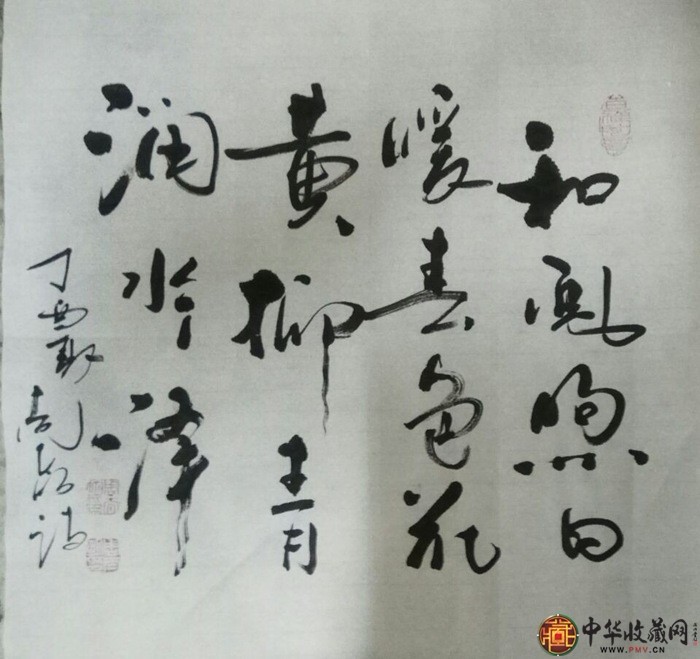 和風煦日
暖春色花
黄柳青
润水泽
丁酉
中华收藏网
WWW.PMV.CN